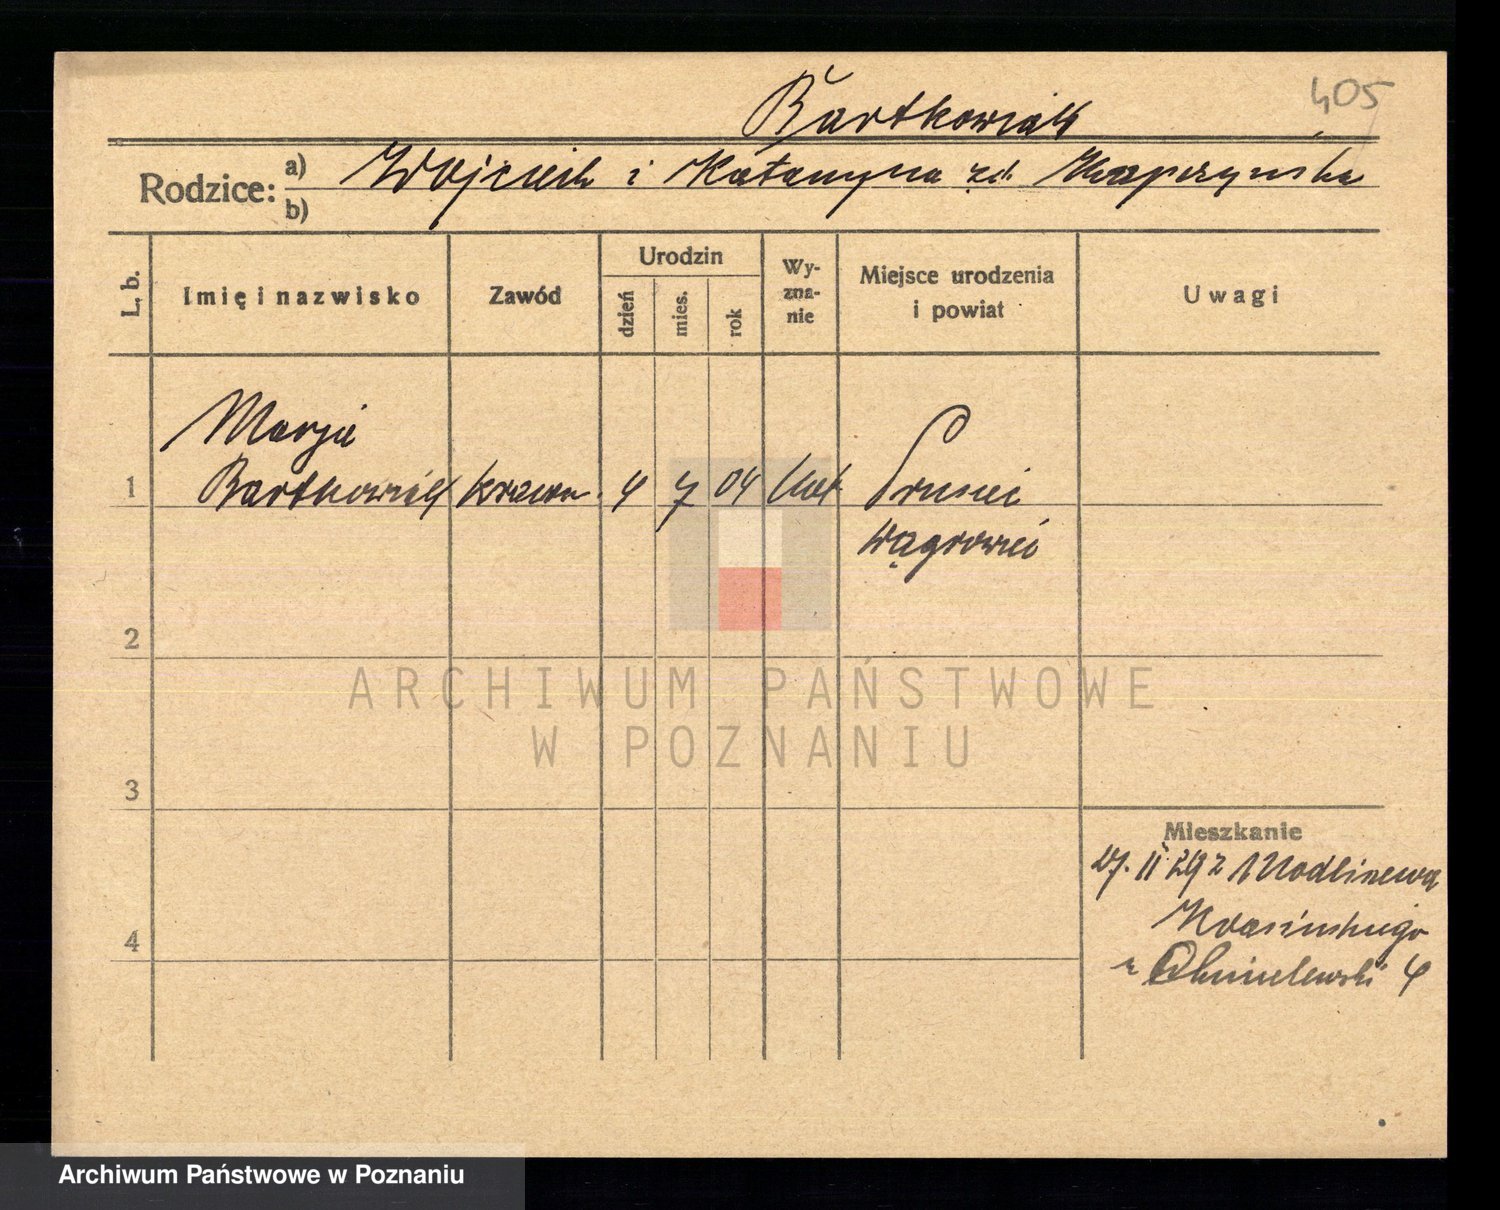 405
Bartkowiak
Rodzice: a) Wojciech i Katarzyna zd.
b)
L. b.
Imię i nazwisko
Zawód
Urodzin
dzień
mies.
rok
Wy-
zna-
nie
Miejsce urodzenia
i powiat
Uwagi
Marja
1 Bartkowiak krawcu. 4 7 04 kat Prusiec
Wągrowiec
2
3
4
ARCHIWUM PAŃSTWOWE
W POZNANIU
Mieszkanie
27. II 29 z Modlinewa
Krasińskiego
u Chmielewski 4
Archiwum Państwowe w Poznaniu